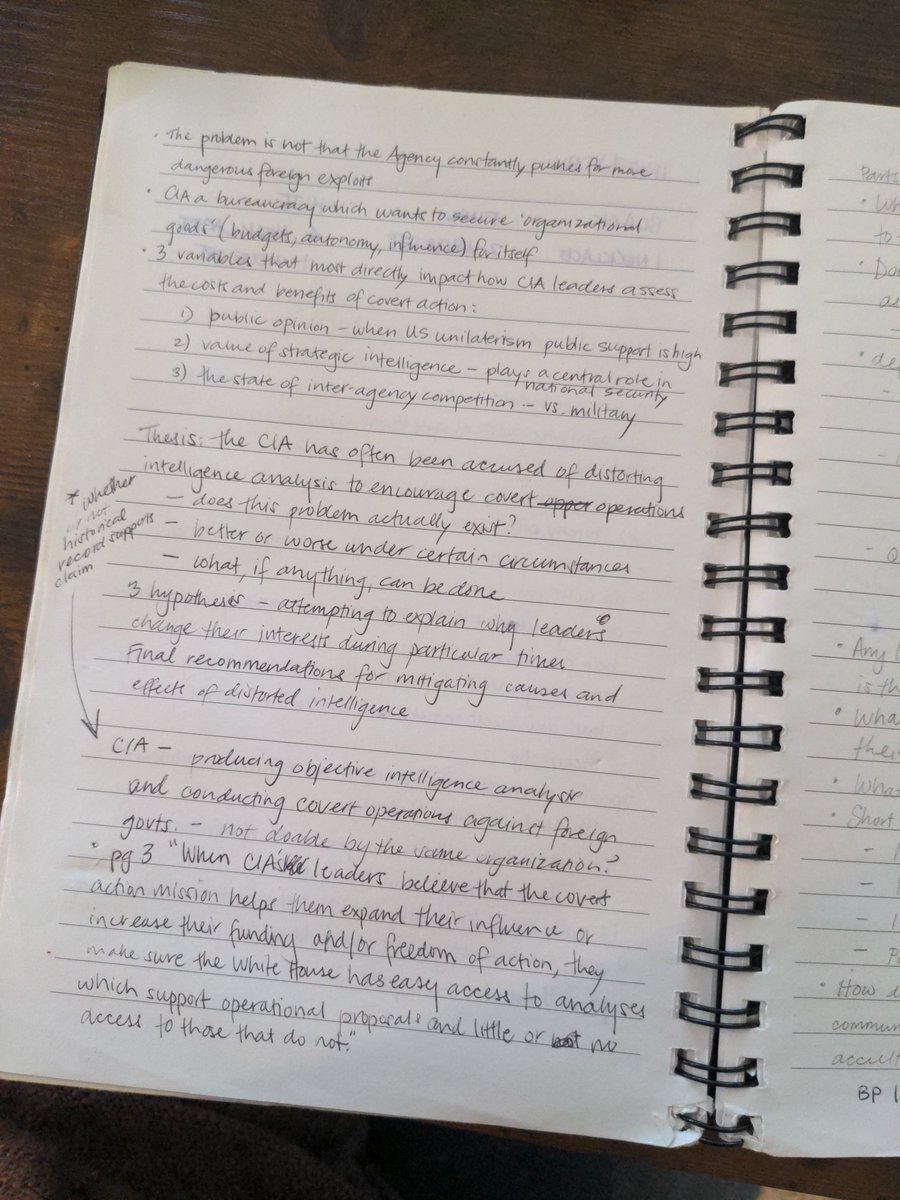 • The problem is not that the Agency constantly pushes for more
dangerous foreign exploits
• CIA a bureaucracy which wants to secure 'organizational
goods' (budgets, autonomy, influence) for itself
• 3 variables that most directly impact how CIA leaders assess
the costs and benefits of covert action:
1) public opinion – when US unilaterism public support is high
2) value of strategic intelligence – plays a central role in
national security
3) the state of inter-agency competition – vs. military
Thesis: the CIA has often been accused of distorting
intelligence analysis to encourage covert operations
– does this problem actually exist?
– better or worse under certain circumstances
– what, if anything, can be done
* whether
or not
historical
record supports
claim
3 hypotheses – attempting to explain why leaders
change their interests during particular times
Final recommendations for mitigating causes and
effects of distorted intelligence
CIA – producing objective intelligence analysis
and conducting covert operations against foreign
govts. – not doable by the same organization?
• pg 3 "When CIA leaders believe that the covert
action mission helps them expand their influence or
increase their funding and/or freedom of action, they
make sure the White House has easy access to analyses
which support operational proposals and little or no
access to those that do not."
Parts
• Wh
to
• Doe
as
• de
• Any
is th
• Wha
thei
• What
• Short
• How d
commun
accult
BP 1